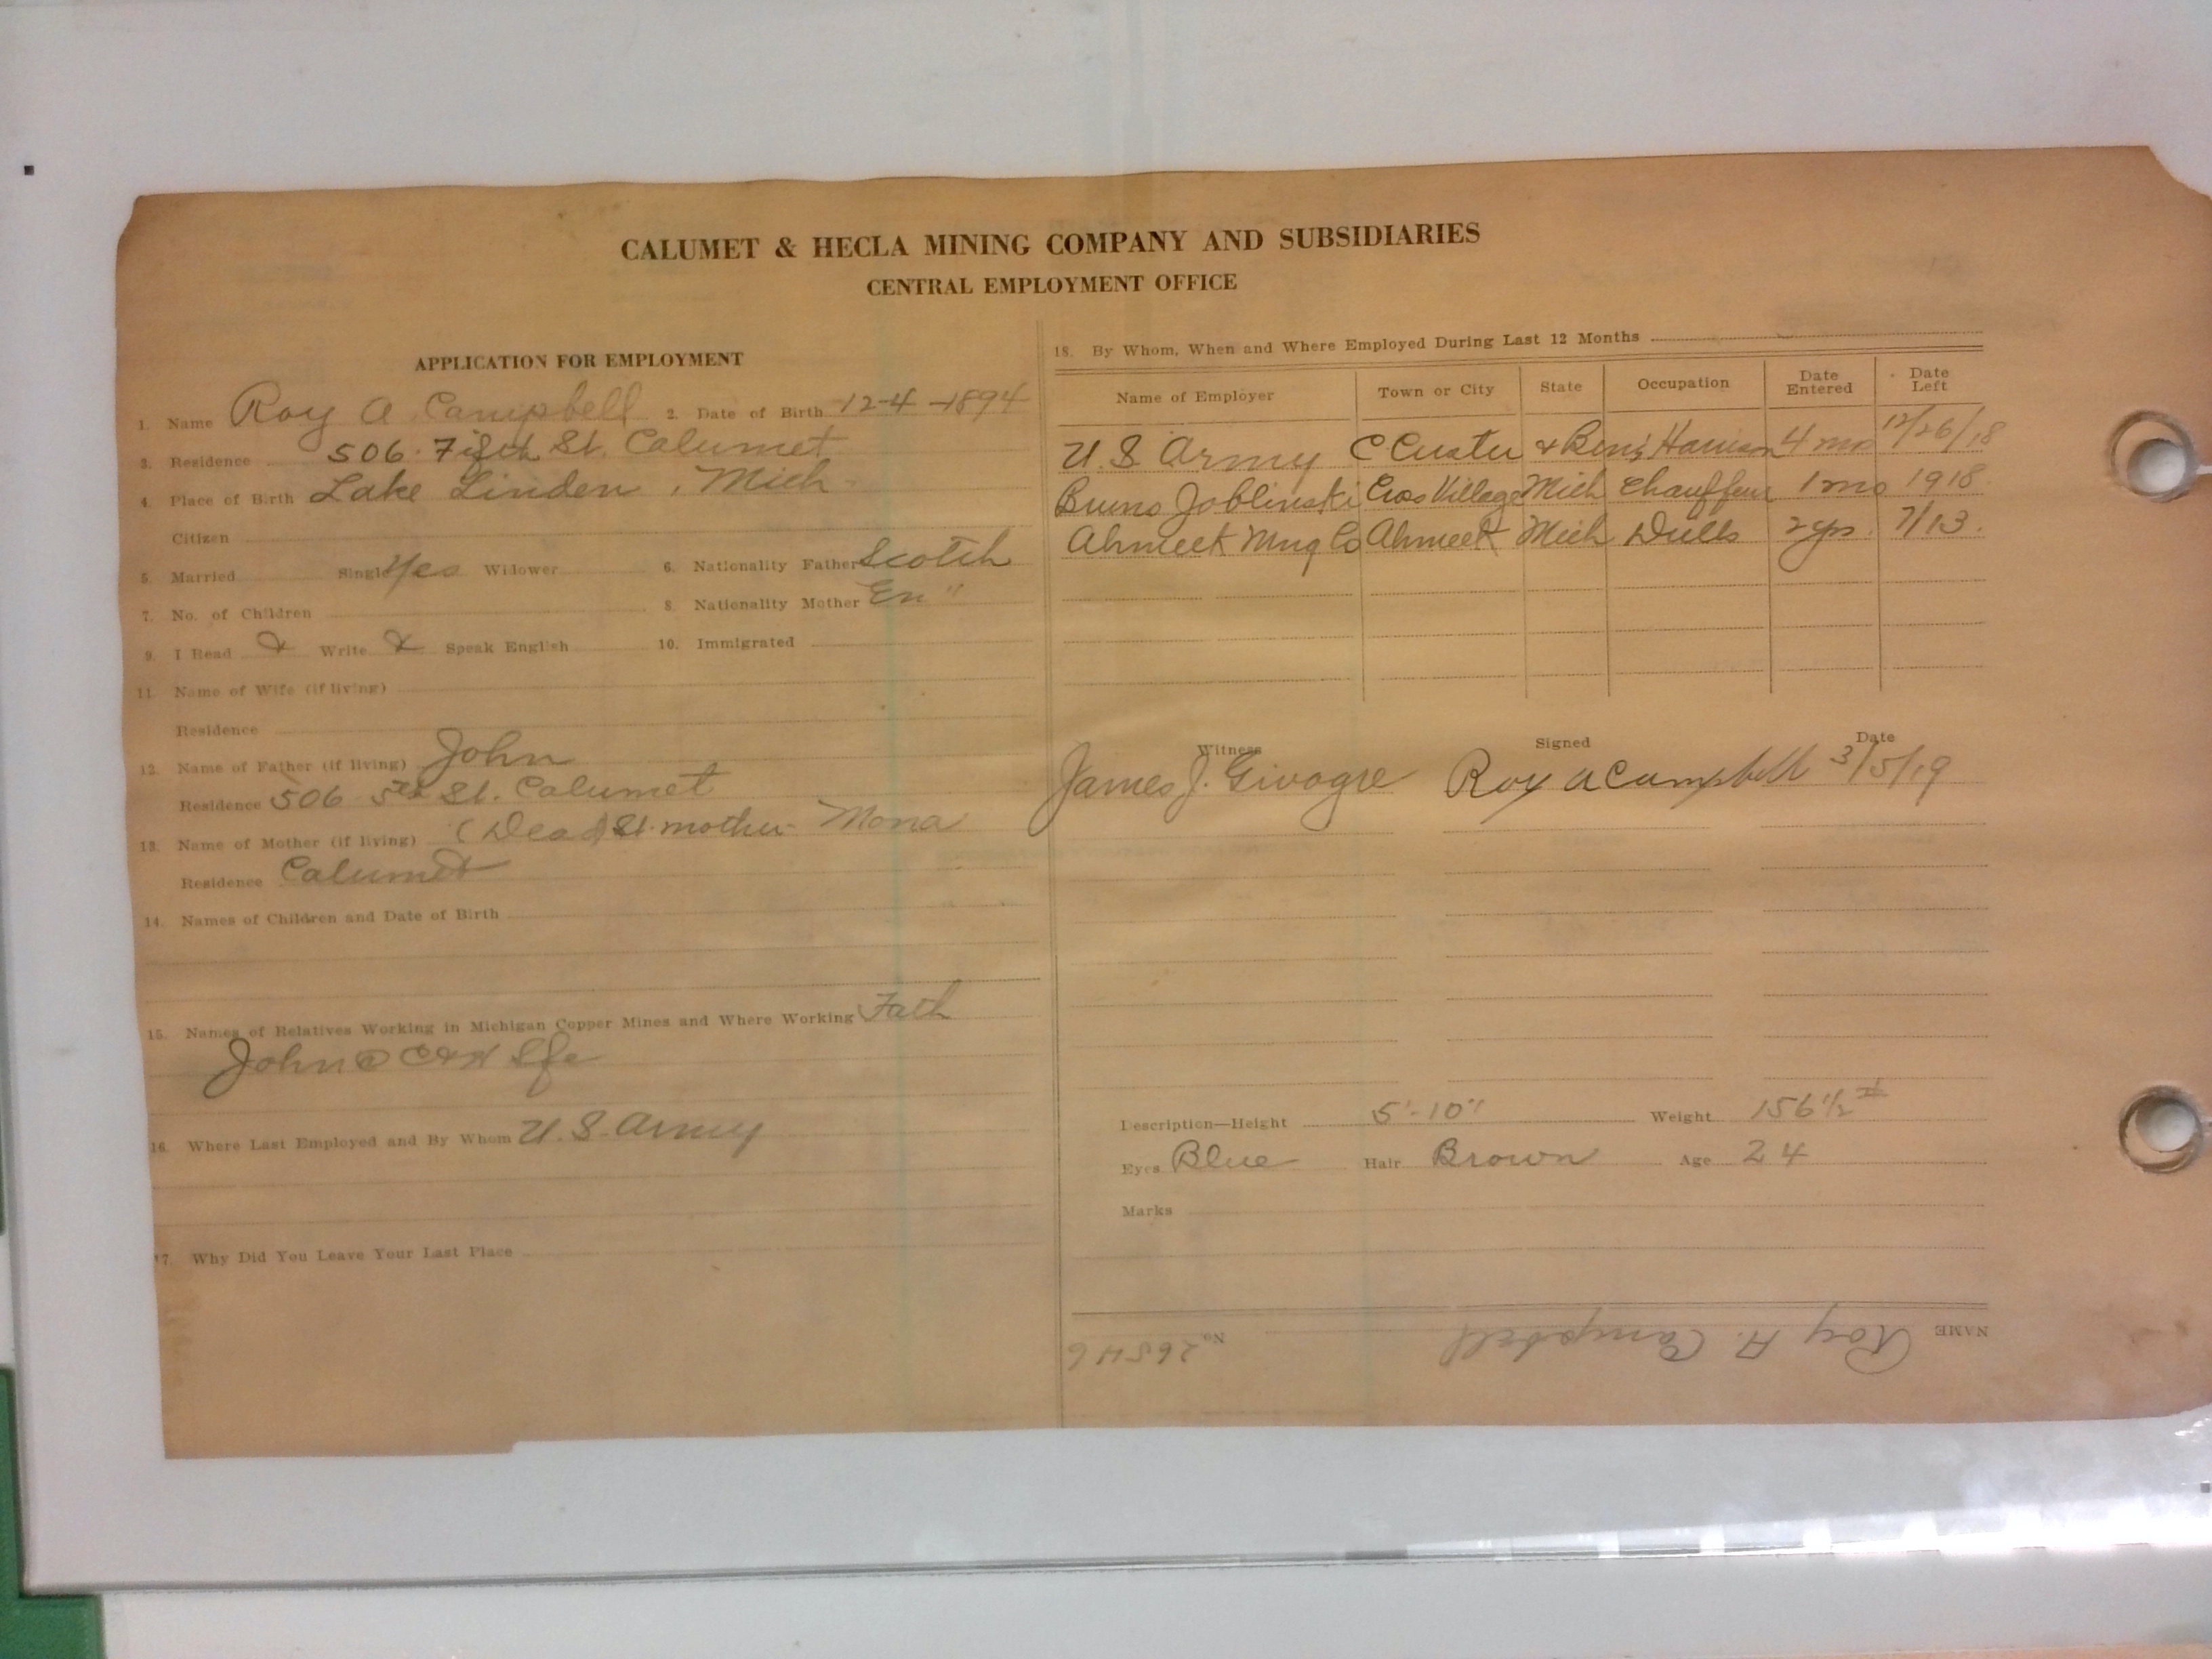 CALUMET & HECLA MINING COMPANY AND SUBSIDIARIES
CENTRAL EMPLOYMENT OFFICE
APPLICATION FOR EMPLOYMENT
1. Name Roy A Campbell 2. Date of Birth 12-4-1894
3. Residence 506 Fifth St. Calumet
4. Place of Birth Lake Linden, Mich
Citizen
5. Married Single Yes Widower 6. Nationality Father Scotch
7. No. of Children 8. Nationality Mother En "
9. I Read Write Speak English 10. Immigrated
11. Name of Wife (if living)
Residence
12. Name of Father (if living) John
Residence 506 5th St. Calumet
13. Name of Mother (if living) (Dead) St. mother Mona
Residence Calumet
14. Names of Children and Date of Birth
15. Names of Relatives Working in Michigan Copper Mines and Where Working Fath
John @ C&H
16. Where Last Employed and By Whom U.S. Army
17. Why Did You Leave Your Last Place
18. By Whom, When and Where Employed During Last 12 Months
Name of Employer Town or City State Occupation Date Entered Date Left
U.S. Army C Custer & Benj Harrison 4 mo 12/26/18
Bruno Mich Chauffeur 1 mo 1918
Ahmeek Mng Co Ahmeek Mich Drills 2 yrs. 7/13.
Witness Signed Date
James J. Roy A Campbell 3/5/19
Description—Height 5'-10" Weight 156 1/2 #
Eyes Blue Hair Brown Age 24
Marks
NAME Roy A. Campbell No. 26546